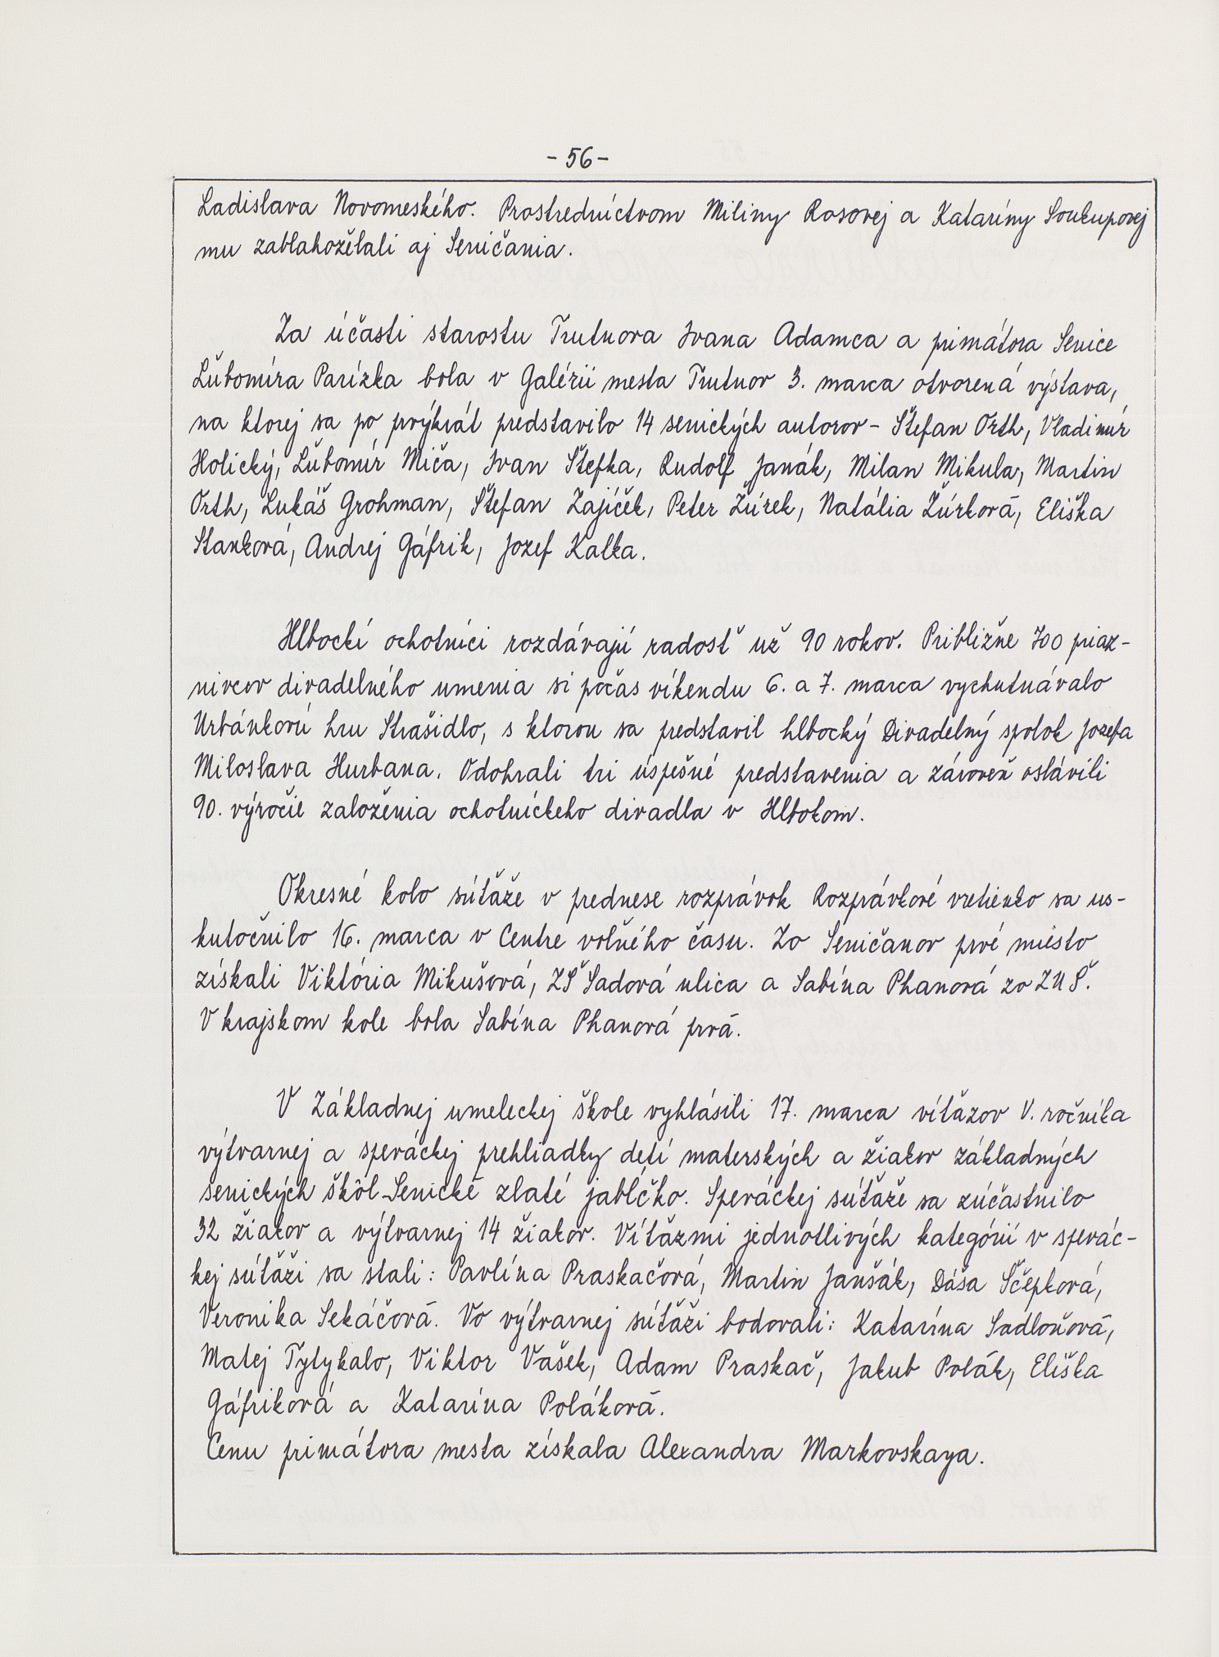 - 56 -
Ladislava Novomeského. Prostredníctvom Miliny Rosovej a Kataríny Soukupovej
mu zablahoželali aj Seničania.
Za účasti starostu Trutnova Ivana Adamca a primátora Senice
Ľubomíra Parízka bola v Galérii mesta Trutnov 3. marca otvorená výstava,
na ktorej sa po prvýkrát predstavilo 14 senických autorov - Štefan Orth, Vladimír
Holický, Ľubomír Miča, Ivan Štefka, Rudolf Janák, Milan Mikula, Martin
Orth, Lukáš Grohman, Štefan Zajíček, Peter Žúrek, Natália Žúrková, Eliška
Stanková, Andrej Gáfrik, Jozef Kalka.
Hlbockí ochotníci rozdávajú radosť už 90 rokov. Približne 700 priaz-
nivcov divadelného umenia si počas víkendu 6. a 7. marca vychutnávalo
Urbánkovú hru Strašidlo, s ktorou sa predstavil hlbocký Divadelný spolok Jozefa
Miloslava Hurbana. Odohrali tri úspešné predstavenia a zároveň oslávili
90. výročie založenia ochotníckeho divadla v Hlbokom.
Okresné kolo súťaže v prednese rozprávok Rozprávkové vretienko sa us-
kutočnilo 16. marca v Centre voľného času. Zo Seničanov prvé miesto
získali Viktória Mikušová, ZŠ Sadová ulica a Sabína Phanová zo ZUŠ.
V krajskom kole bola Sabína Phanová prvá.
V Základnej umeleckej škole vyhlásili 17. marca víťazov V. ročníka
výtvarnej a speváckej prehliadky detí materských a žiakov základných
senických škôl - Senické zlaté jabĺčko. Speváckej súťaže sa zúčastnilo
32 žiakov a výtvarnej 14 žiakov. Víťazmi jednotlivých kategórií v spevác-
kej súťaži sa stali: Pavlína Praskačová, Martin Janšák, Dáša Ščepková,
Veronika Sekáčová. Vo výtvarnej súťaži bodovali: Katarína Sadloňová,
Matej Tytykalo, Viktor Vašek, Adam Praskač, Jakub Polák, Eliška
Gáfriková a Katarína Poláková.
Cenu primátora mesta získala Alexandra Markovskaya.